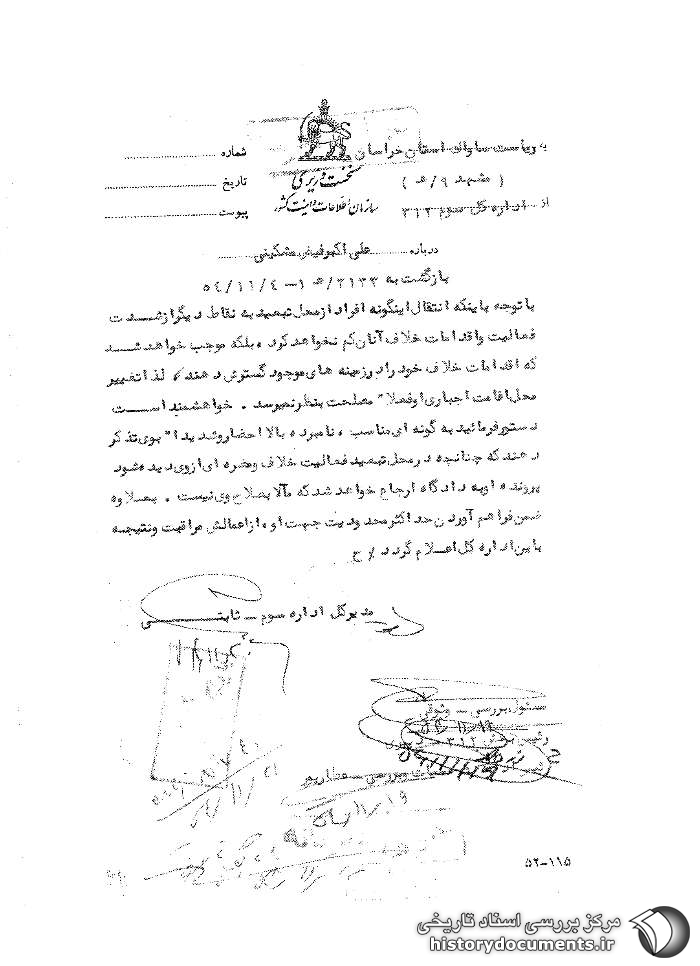 به ریاست ساواک استان خراسان
( مشهد ۹/ه )
از اداره کل سوم ۳۱۲
نخست وزیری
سازمان اطلاعات و امنیت کشور
شماره
تاریخ
پیوست
درباره علی اکبر فیض مشکینی
بازگشت به ۳۱۳۳/ه ۱-۵۴/۱۱/۴
با توجه باینکه انتقال اینگونه افراد از محل تبعید به نقاط دیگر از شدت
فعالیت و اقدامات خلاف آنان کم نخواهد کرد ، بلکه موجب خواهد شد
که اقدامات خلاف خود را در زمینه های موجود گسترش دهند ، لذا تغییر
محل اقامت اجباری او فعلا" مصلحت بنظر نمیرسد . خواهشمند است
دستور فرمائید به گونه ای مناسب ، نامبرده بالا احضار و شدیدا" بوی تذکر
دهند که چنانچه در محل تبعید فعالیت خلاف و مضره ای از وی دیده شود
پرونده او به دادگاه ارجاع خواهد شد که مآلا بصلاح وی نیست . بعلاوه
ضمن فراهم آوردن حداکثر محدودیت جهت او ، از اعمالش مراقبت و نتیجه
باین اداره کل اعلام گردد / ح
مدیر کل اداره سوم - ثابتی
مسئول بررسی - وثوقی
رئیس بخش ۳۱۲
بررسی - عطارپور
۵۴/۱۱/۱۹
۵۴/۱۱/۲۱
۵۲-۱۱۵
مرکز بررسی اسناد تاریخی
historydocuments.ir